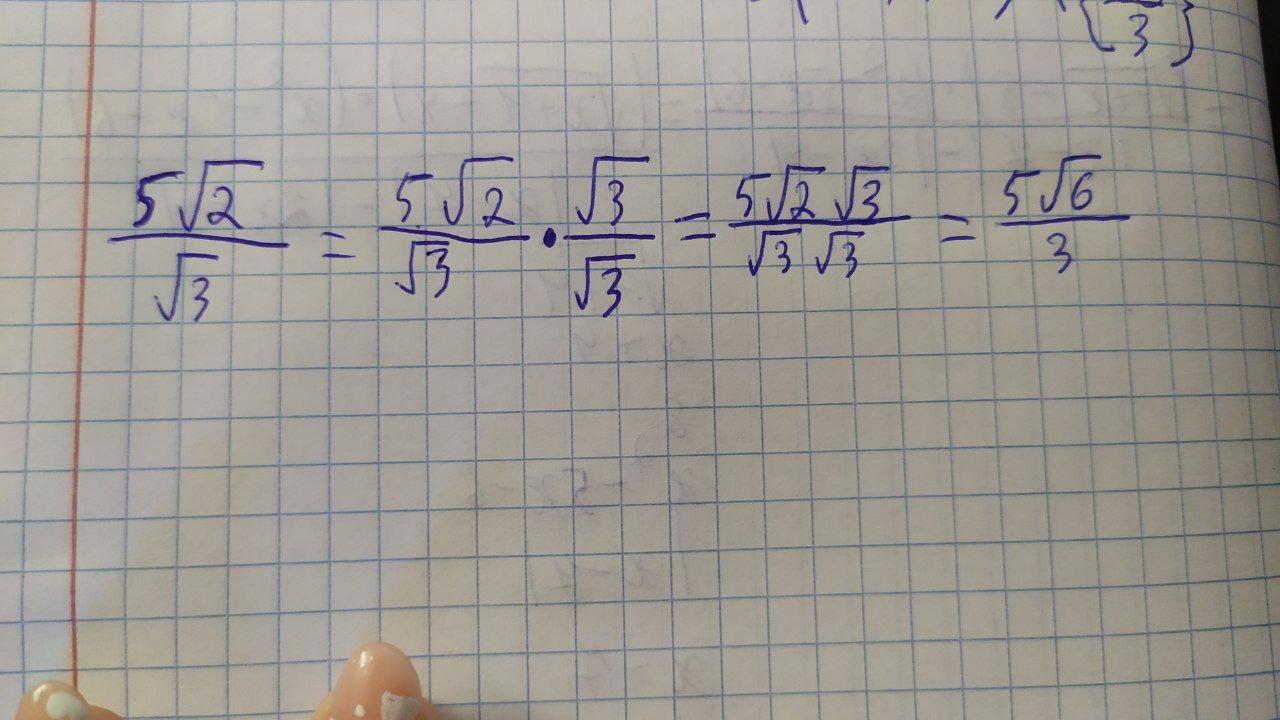 3}
5√2/√3 = 5√2/√3 • √3/√3 = 5√2 √3/√3 √3 = 5√6/3